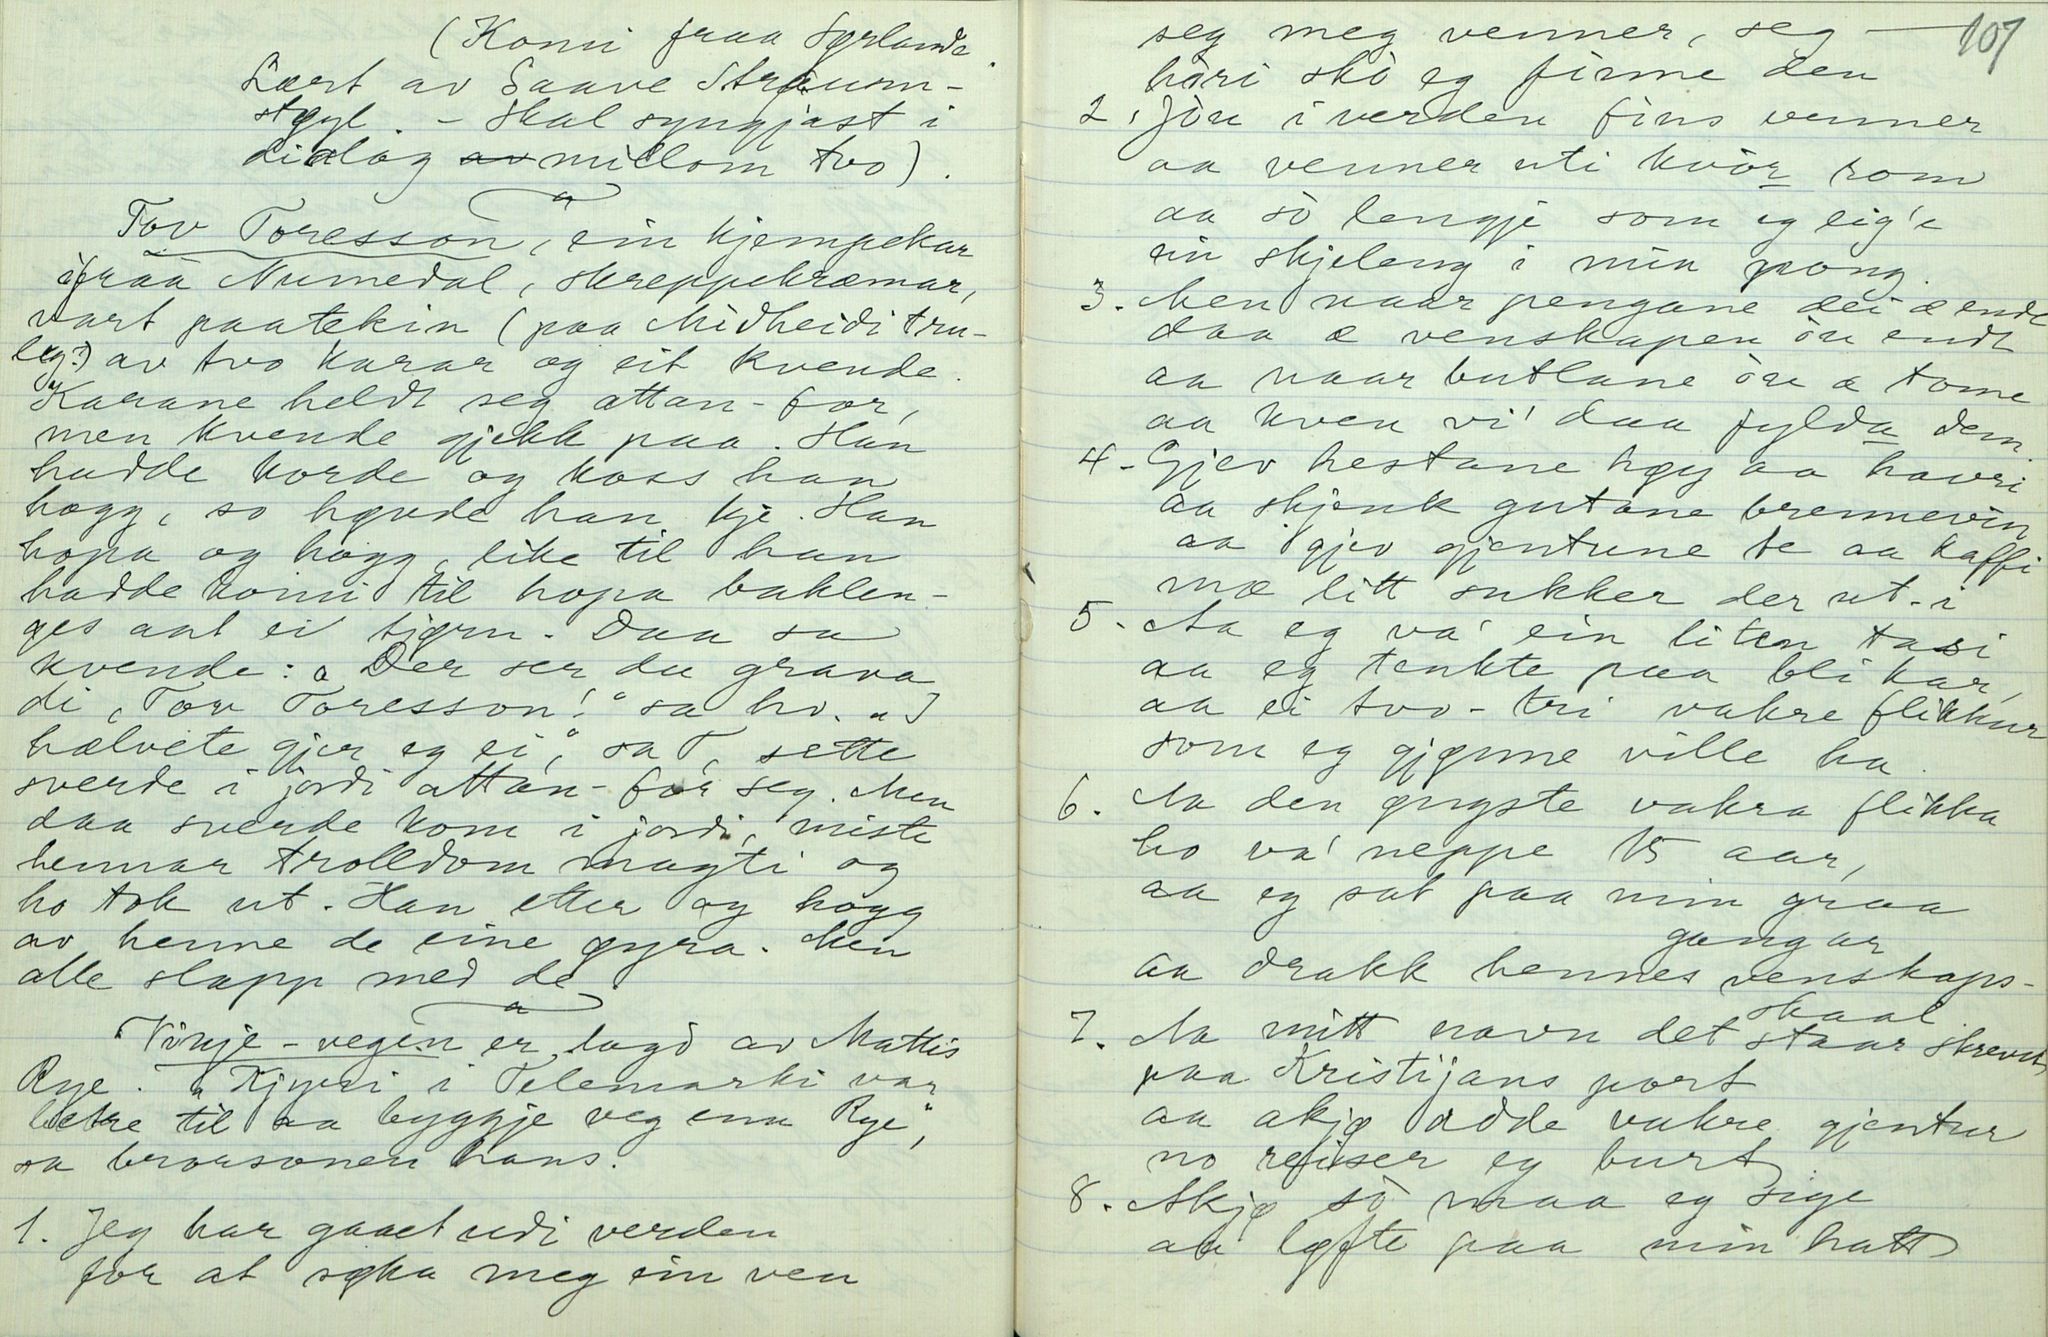 (Komi fraa Sørlande
Lært av Saave Straum-
støyl. - Skal syngjast i
dialog av millom tvo).
Tov Toresson, ein kjempekar
ifraa Numedal, skreppekræmar,
vart paatekin (paa Midheidi tru-
leg?) av tvo karar og eit kvende.
Karane heldt seg attan-for,
men kvende gjekk paa. Han
hadde korde og koss han
hogg, so høvde han kje. Han
hopa og hogg, like til han
hadde komi til hopa baklen-
ges aat ei tjørn. Daa sa
kvende: "Der ser du grava
di, Tov Toresson!" sa ho. "I
hælvete gjer eg ei", sa T, sette
sverde i jordi attan-for seg. Men
daa sverde kom i jordi, miste
hennar trolldom magti og
ho tok ut. Han etter og hogg
av henne de eine øyra. Men
alle slapp med de.
Vinje-vegen er lagd av Mattis
Rye. "Kjyri i Telemarki var
betre til aa byggje veg enn Rye",
sa brorsonen hans.
1. Jeg har gaaet udi verden
for at søka meg ein ven
107
seg meg venner, seg —
hori sko eg finne den
2. Jou i verden fins venner
aa venner uti kvòr rom
aa sò lengje som eg eig'e
ein skjeleng i min pong.
3. Men naar pengane dei æ ende
daa æ venskapen òu endt
aa naar butlane òre æ tome
aa kven vi' daa fylda dem.
4. Gjev hestane høy aa havri
aa skjenk gutane brennevin
aa gjev gjentune te aa kaffi
mæ litt sukker der ut-i
5. Aa eg va' ein liten tasi
aa eg tenkte paa bli kar,
aa ei tvo-tri vakre flikkur
som eg gjønne ville ha.
6. Aa den øngste vakra flikka
ho va' neppe 15 aar,
aa eg sat paa min graa
gangar
aa drakk hennes venskaps-
skaal
7. Aa mitt navn det staar skrevet
paa Kristijans port
aa akjø adde vakre gjentur
no reiser eg burt
8. Akjø sò maa eg sige
aa løfte paa min hatt